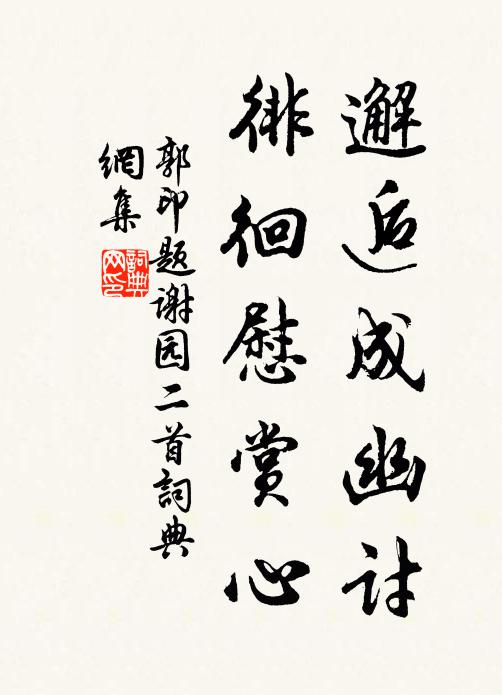 邂逅成幽討
徘徊慰賞心
郭印题谢园二首詞典
網集
詞典网印